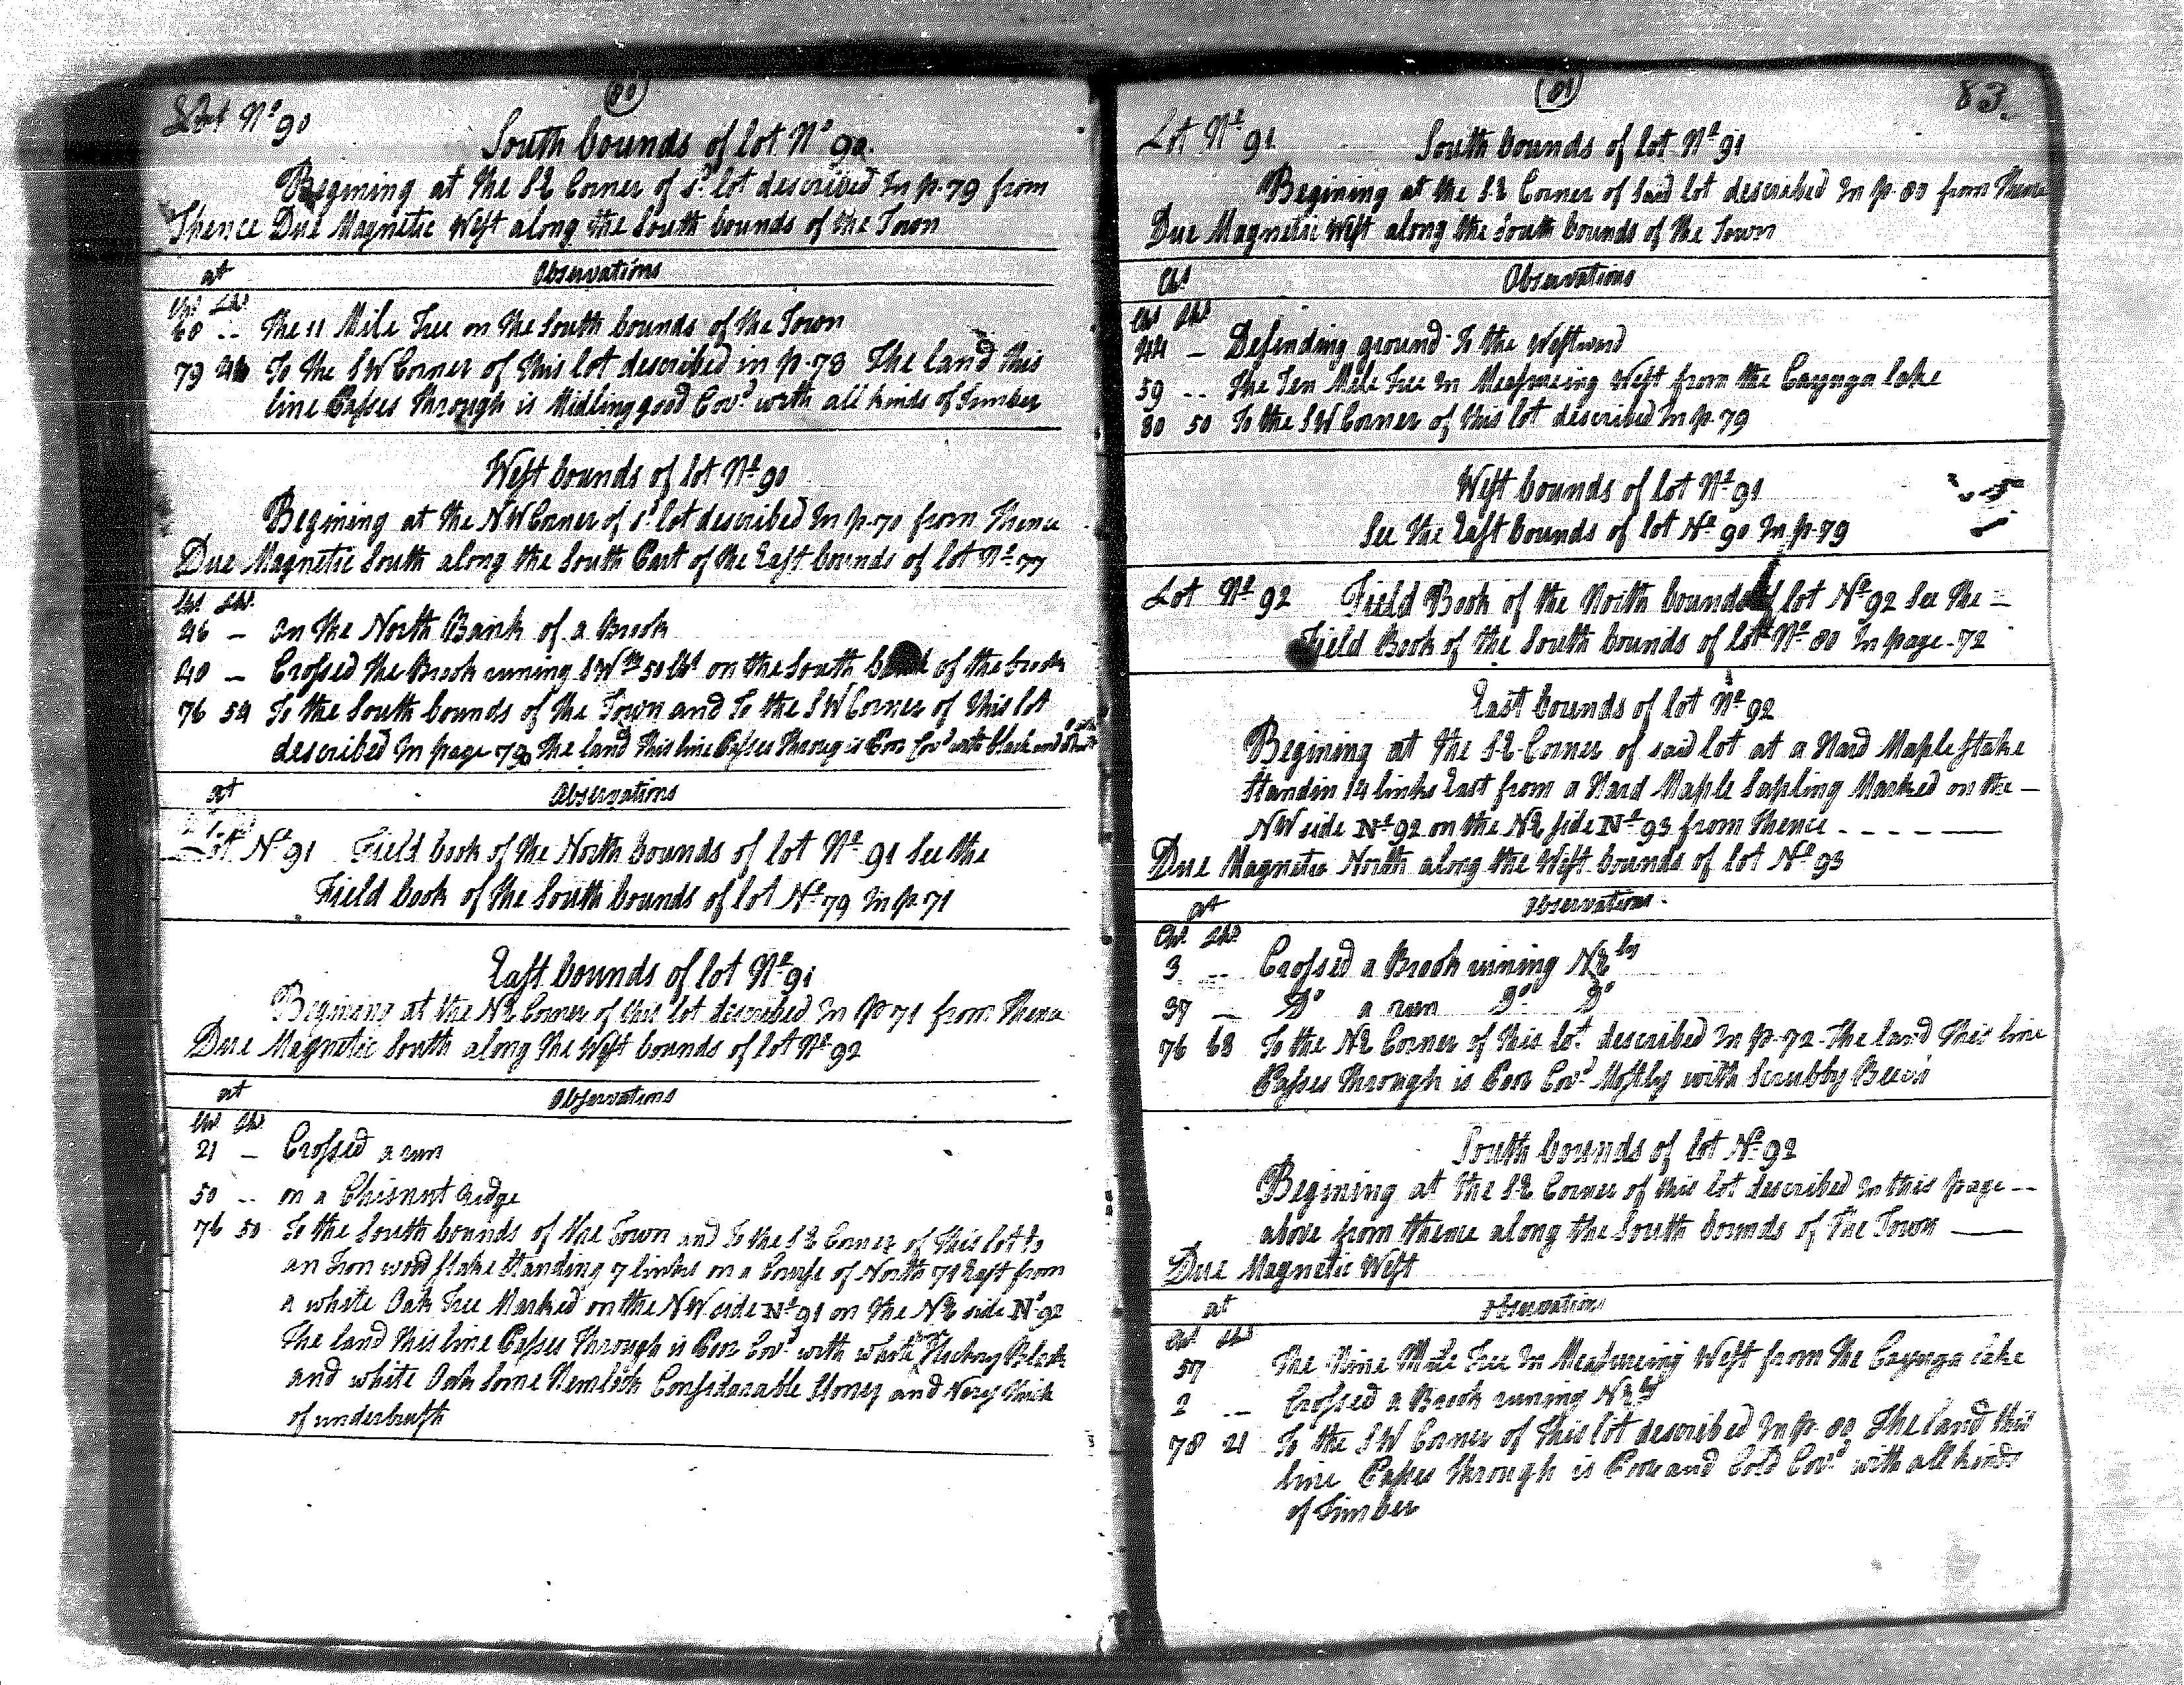 80
Lot No 90
South bounds of lot No 90.
Begining at the SE Corner of sd lot described In p. 79 from
Thence Due Magnetic West along the South bounds of the Town
at Observations
Chs Lks
60 -- The 11 Mile Tree on the South bounds of the Town
79 To the SW Corner of this lot described in p. 78 The land this
line Passes through is Midling good Covd with all kinds of Timber
West bounds of lot No 90
Begining at the NW Corner of sd lot described In p. 70 from Thence
Due Magnetic South along the South Part of the East bounds of lot No 77
Chs Lks
46 - on the North Bank of a Brook
- Crossed the Brook runing SW 50 lks on the South bank of the brook
76 54 To the South bounds of the Town and To the SW Corner of this lot
described In page 78 The land this line Passes throug is Poor Covd with black and
at Observations
Lot No 91 Field book of the North bounds of lot No 91 See the
Field book of the South bounds of lot No 79 In p. 71
East bounds of lot No 91
Begining at the NE Corner of this lot described In p 71 from Thence
Due Magnetic South along the West bounds of lot No 92
at Observations
Chs Lks
21 - Crossed a run
50 -- on a Chisnut Ridge
76 50 To the South bounds of the Town and To the SE Corner of this lot to
an Iron wood stake Standing 7 links on a Course of North 71 East from
a white Oak Tree Marked on the NW side No 91 on the NE side No 92
The land this line Passes through is Poor Covd with white Hickory Black
and white Oak Some Hemlock Considarable Stoney and Very thick
of underbrush
81
83.
Lot No 91
South bounds of lot No 91
Begining at the SE Corner of Said lot described In p. 80 from Thence
Due Magnetic West along the South bounds of the Town
At Observations
Chs Lks
44 - Desending ground to the Westward
59 -- The Ten Mile Tree In Measureing West from the Cayuga lake
80 50 To the SW Corner of this lot described In p. 79
West bounds of lot No 91
See the East bounds of lot No 90 In p. 79
Lot No 92 Field Book of the North bounds of lot No 92 See the -
Field Book of the South bounds of lot No 80 In page - 72
East bounds of lot No 92
Begining at the SE Corner of said lot at a Hard Maple stake
Standin 14 links East from a Hard Maple Sapling Marked on the -
NW side No 92 on the NE side No 93 from thence - - - - -
Due Magnetic North along the West bounds of lot No 93
at Observations
Chs Lks
3 -- Crossed a Brook runing NEly
37 - Do a run Do Do
76 63 To the NE Corner of this lot described In p. 72 - The land this line
Passes through is Poor Covd Mostly with Scrubby Beech
South bounds of lot No 92
Begining at the SE Corner of this lot described In this page --
above from thence along the South bounds of The Town -
Due Magnetic West
at Observations
Chs Lks
57 The Nine Mile Tree In Measureing West from the Cayuga lake
2 -- Crossed a Brook runing NEly
78 21 To the SW Corner of this lot described In p. 80 The land this
line Passes through is Poor and Cold Covd with all kinds
of Timber